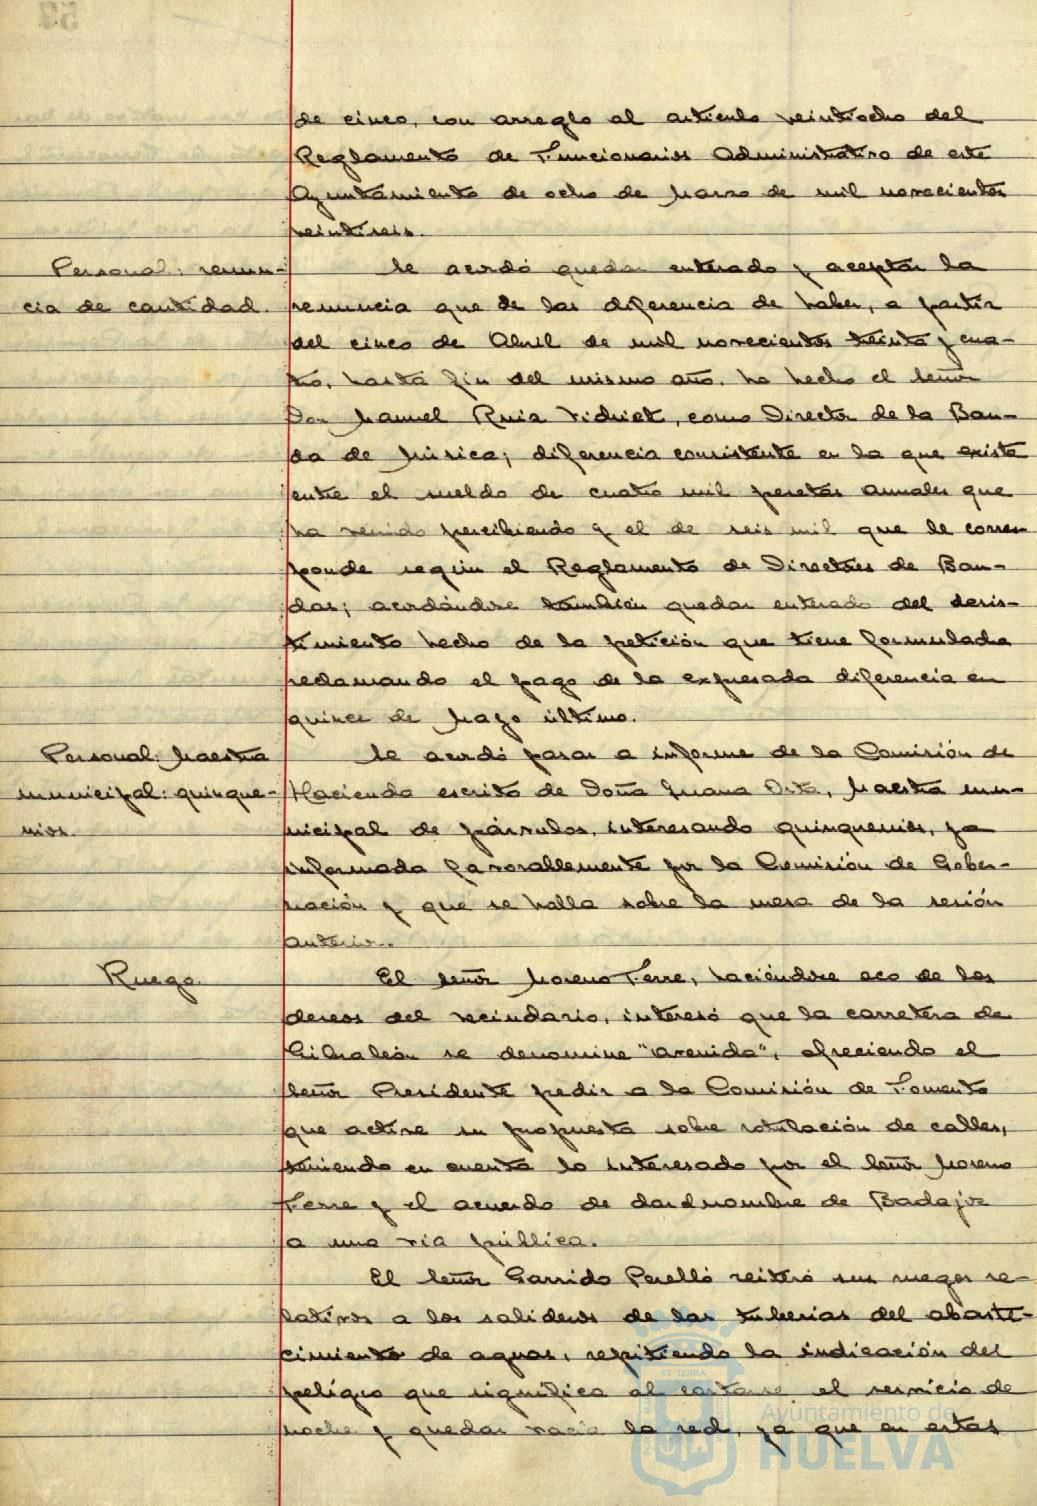 de cinco, con arreglo al artículo veintiocho del
Reglamento de Funcionarios Administrativo de este
Ayuntamiento de ocho de Marzo de mil novecientos
veintiseis.
Personal: renun-
cia de cantidad.
Se acordó quedar enterado y aceptar la
renuncia que de las diferencia de haber, a partir
del cinco de Abril de mil novecientos treinta y cua-
tro, hasta fin del mismo año, ha hecho el Señor
Don Manuel Ruiz Vidriet, como Director de la Ban-
da de Música; diferencia consistente en la que existe
entre el sueldo de cuatro mil pesetas anuales que
ha venido percibiendo y el de seis mil que le corres-
ponde según el Reglamento de Directores de Ban-
das; acordándose también quedar enterado del desis-
timiento hecho de la petición que tiene formulada
reclamando el pago de la expresada diferencia en
quince de Mayo último.
Personal: Maestra
municipal: quinque-
nios.
Se acordó pasar a informe de la Comisión de
Hacienda escrito de Doña Juana Orta, Maestra mu-
nicipal de párvulos, interesando quinquenios, ya
informada favorablemente por la Comisión de Gober-
nación y que se halla sobre la mesa de la sesión
anterior.
Ruego.
El Señor Moreno Ferre, haciéndose eco de los
deseos del vecindario, interesó que la carretera de
Gibraleón se denomine "avenida", ofreciendo el
Señor Presidente pedir a la Comisión de Fomento
que active su propuesta sobre rotulación de calles,
teniendo en cuenta lo interesado por el Señor Moreno
Ferre y el acuerdo de dar el nombre de Badajoz
a una vía pública.
El Señor Garrido Perelló reiteró sus ruegos re-
lativos a los salideros de las tuberias del abaste-
cimiento de aguas, repitiendo la indicación del
peligro que significa al cortarse el servicio de
noche y quedar vacia la red, ya que en estas
Ayuntamiento de
HUELVA